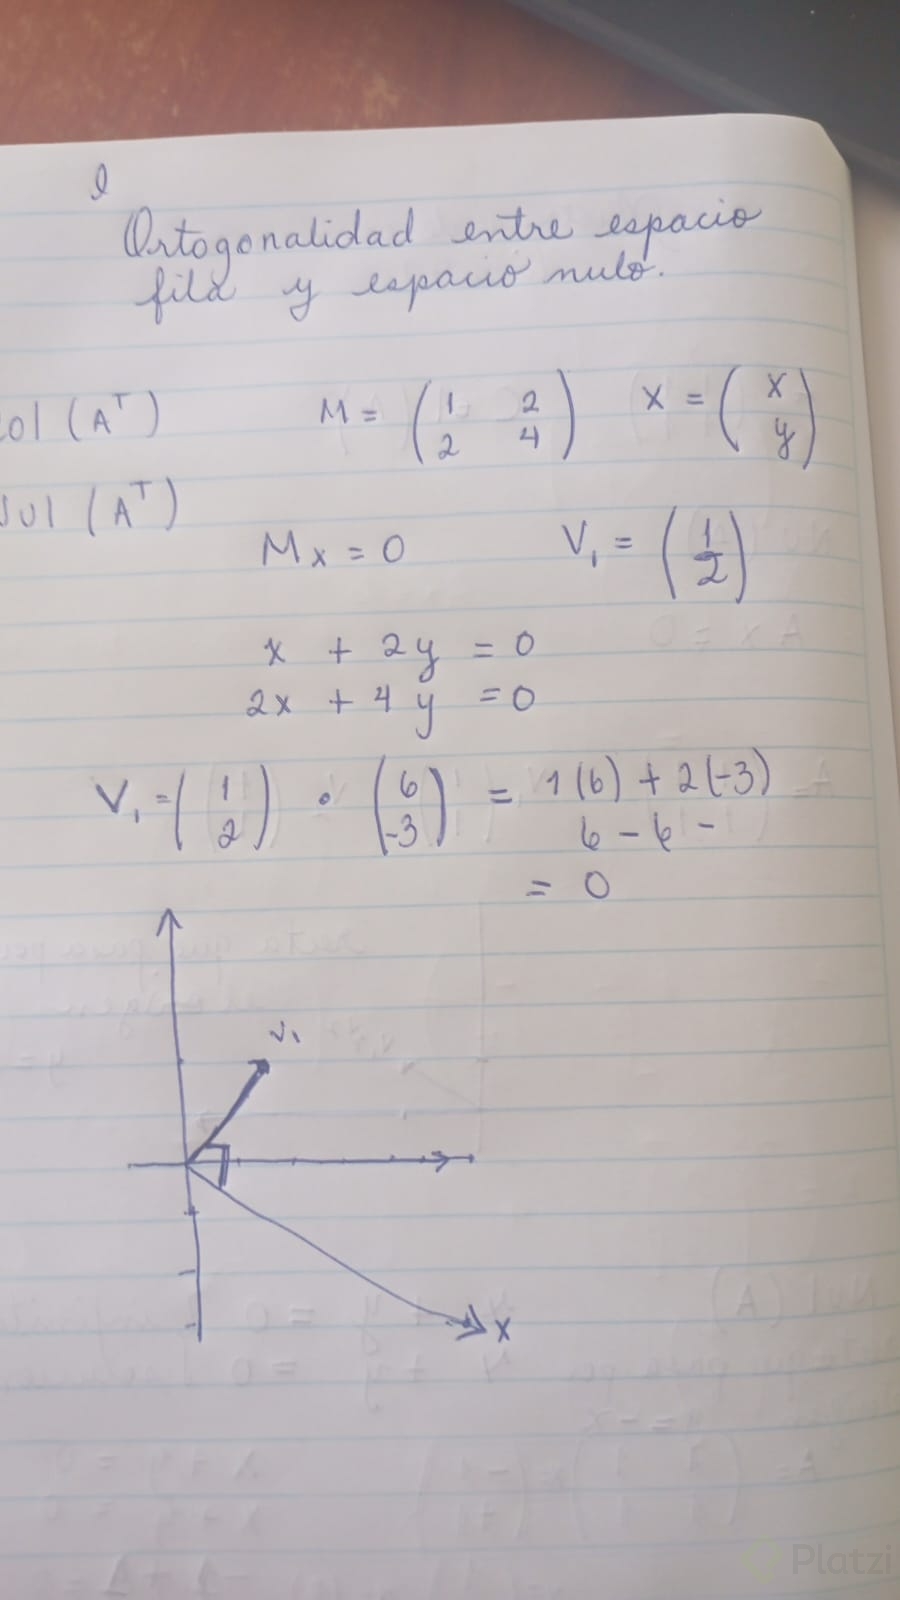 Ortogonalidad entre espacio
fila y espacio nulo.
Col (A^T)
M = (1 2; 2 4) X = (x; y)
Nul (A^T)
Mx = 0 V₁ = (1; 2)
x + 2y = 0
2x + 4y = 0
V₁ = (1; 2) • (6; -3) = 1(6) + 2(-3)
6 - 6 -
= 0
V₁
X
Platzi